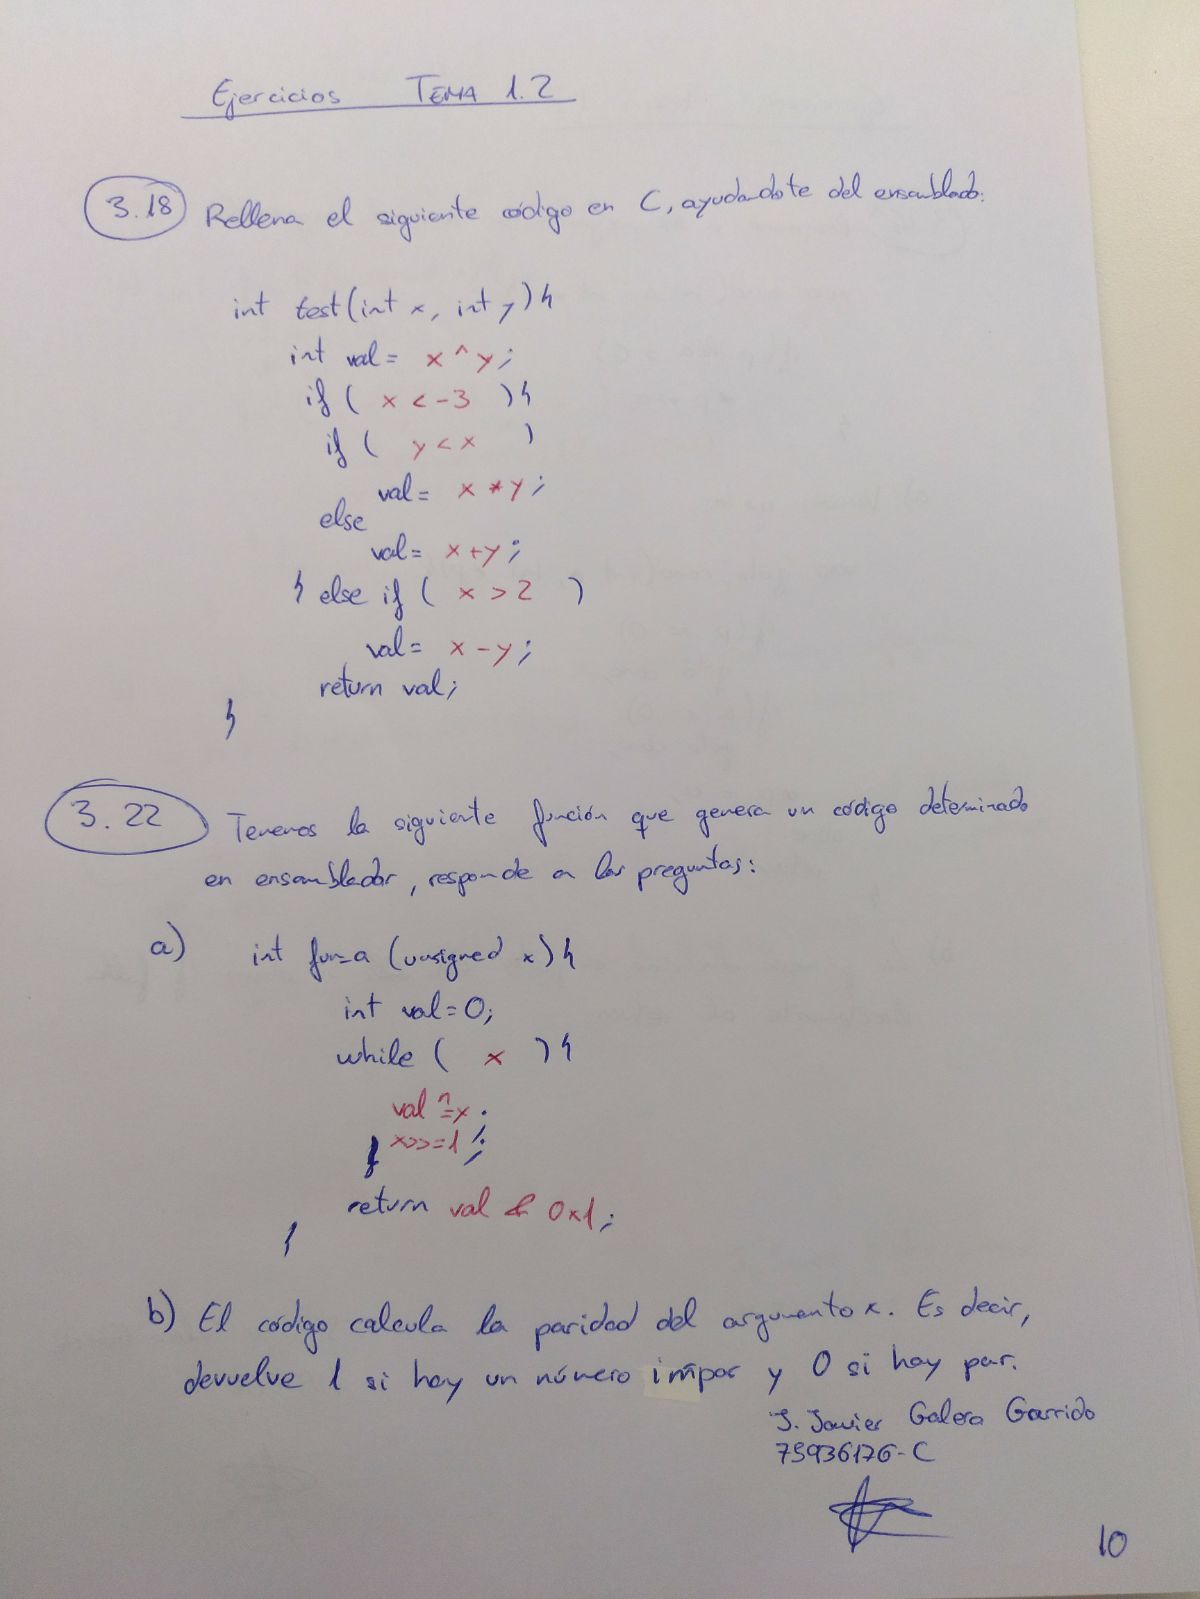 Ejercicios TEMA 1.2
3.18 Rellena el siguiente código en C, ayudandote del ensamblado:
int test(int x, int y){
int val = x ^ y;
if ( x < -3 ){
if ( y < x )
val = x * y;
else
val = x + y;
} else if ( x > 2 )
val = x - y;
return val;
}
3.22 Tenemos la siguiente función que genera un código determinado
en ensamblador, responde a las preguntas:
a) int fun_a (unsigned x){
int val = 0;
while ( x ){
val ^= x ;
} x >>= 1 ;
return val & 0x1;
}
b) El código calcula la paridad del argumento x. Es decir,
devuelve 1 si hay un número impar y 0 si hay par.
J. Javier Galera Garrido
75936176-C
10